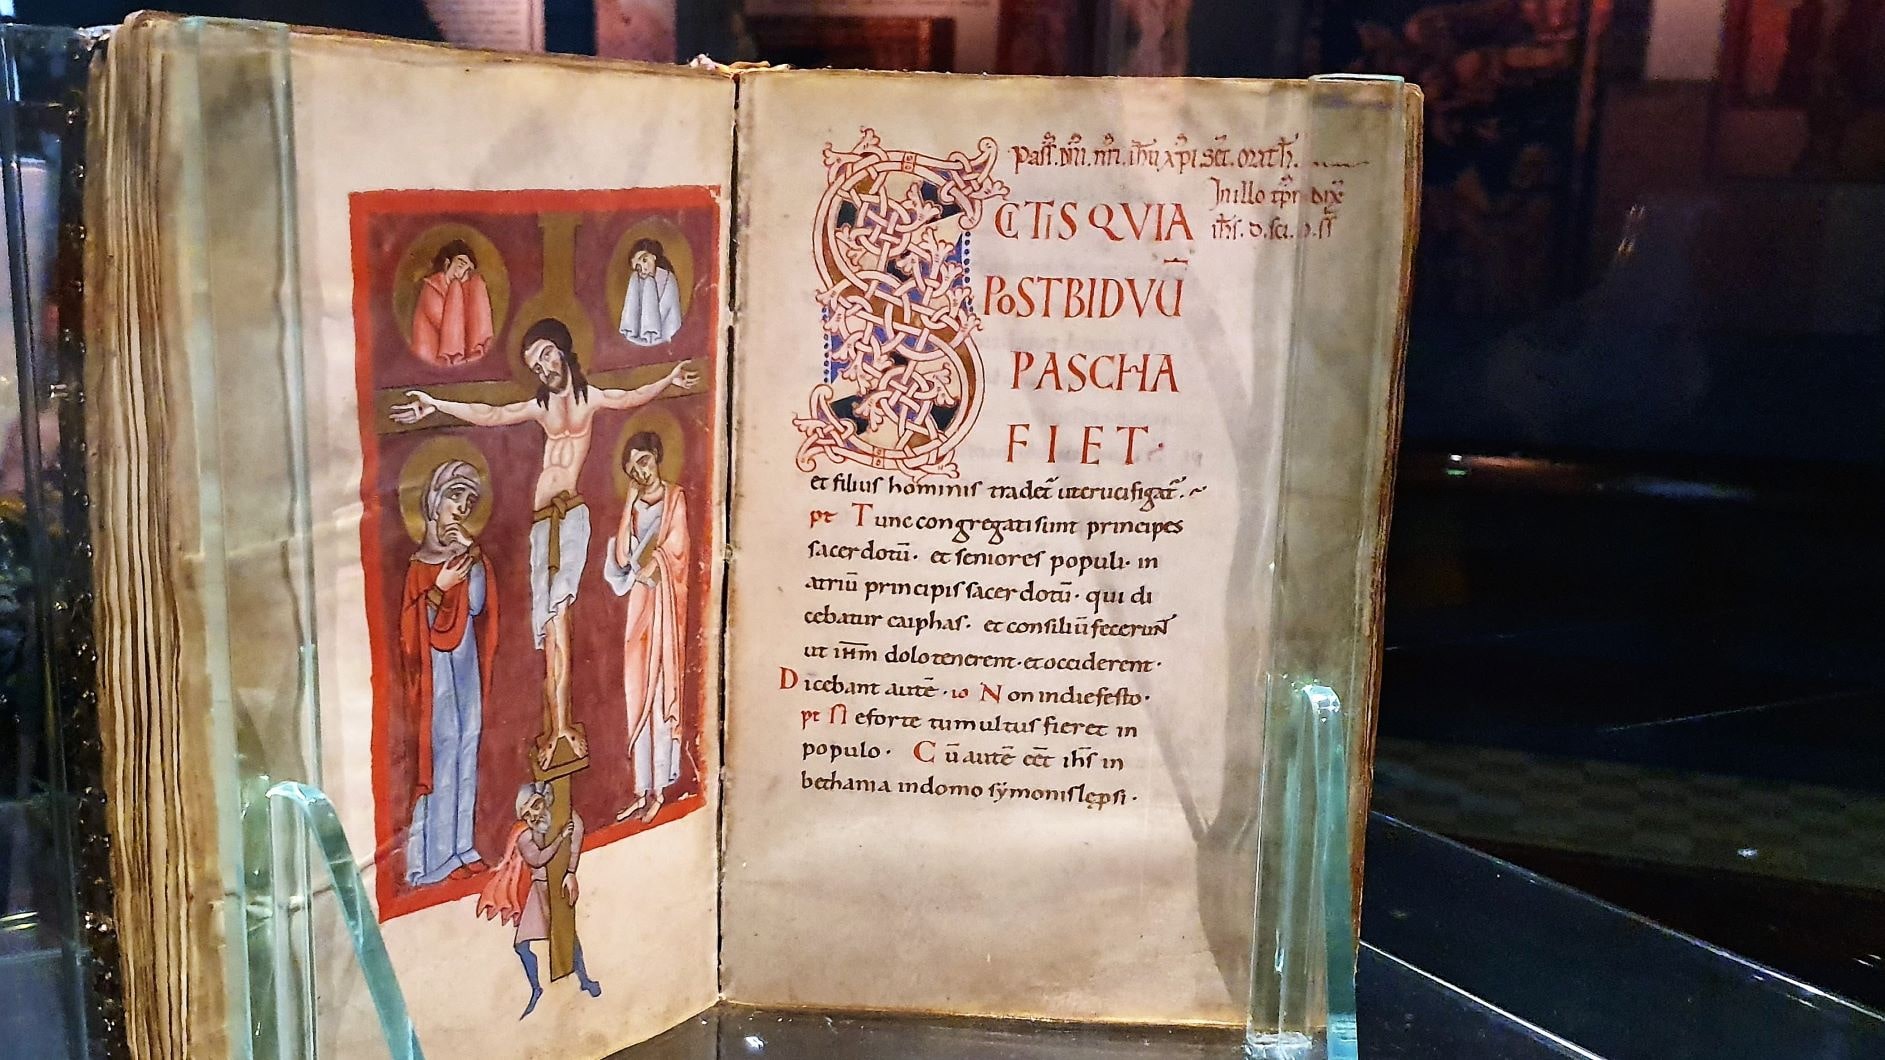 Pass̄. dn̄i. nr̄i. ih̄u xp̄i sec̄. math̄.
In illo tp̄r dix̄
ih̄s. d. sci. d. s̄s̄
SCITIS QVIA
POSTBIDVŪ
PASCHA
FIET·
et filius hominis tradet̄ utcrucifigat̄·
pt Tunc congregati sunt principes
sacerdotū· et seniores populi· in
atriū principis sacerdotū· qui di
cebatur caiphas· et consiliū fecerunt
ut ih̄m dolo tenerent· et occiderent·
Dicebant autē· io Non indiefesto·
pt Neforte tumultus fieret in
populo· Cū autē eēt ih̄s in
bethania indomo sẏmonis lępsi·